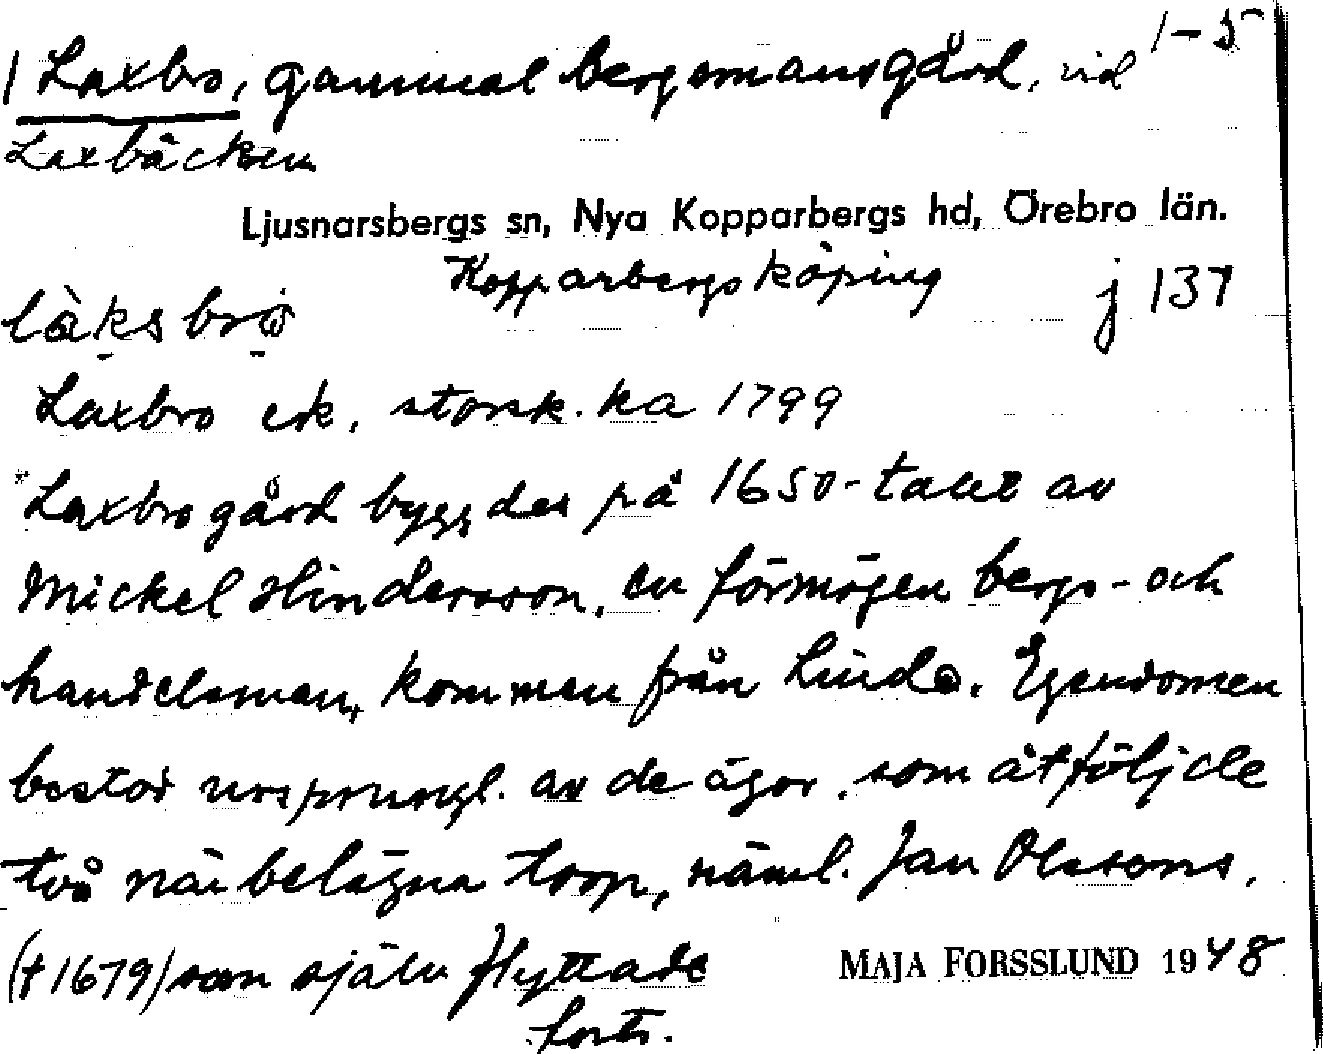 1-5
1 Laxbro, gammal bergsmansgård, vid
Laxbäcken
Ljusnarsbergs sn, Nya Kopparbergs hd, Örebro län.
Kopparbergs köping j 137
Laxbro ek. storsk. ka 1799
"Laxbro gård byggdes på 1650-talet av
Mickel Hindersson, en förmögen bergs- och
handelsman, kommen från Linde. Egendomen
bestod ursprungl. av de ägor, som åtföljde
två närbelägna torp, näml. Jan Olssons,
(† 1679) som själv flyttade
forts.
MAJA FORSSLUND 1948